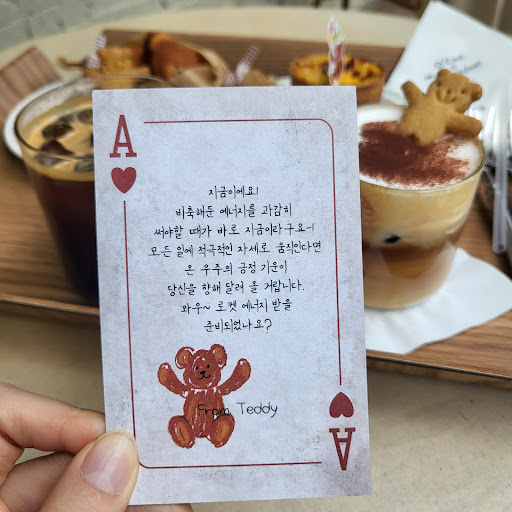 A
지금이에요!
비축해둔 에너지를 과감히
써야할 때가 바로 지금이라구요~!
모든 일에 적극적인 자세로 움직인다면
온 우주의 긍정 기운이
당신을 향해 달려 올 거랍니다.
와우~ 로켓 에너지 받을
준비되었나요?
From Teddy
A